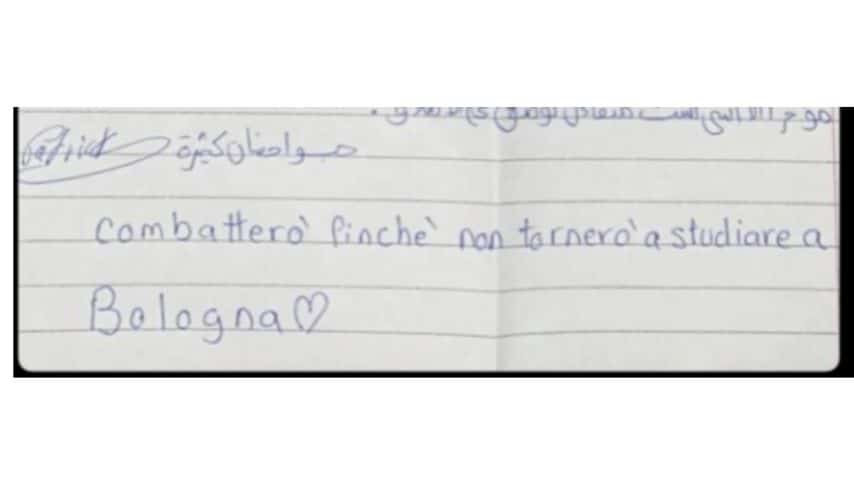 حب واحضان كثيرة Patrick
combatterò finchè non tornerò a studiare a
Bologna♡